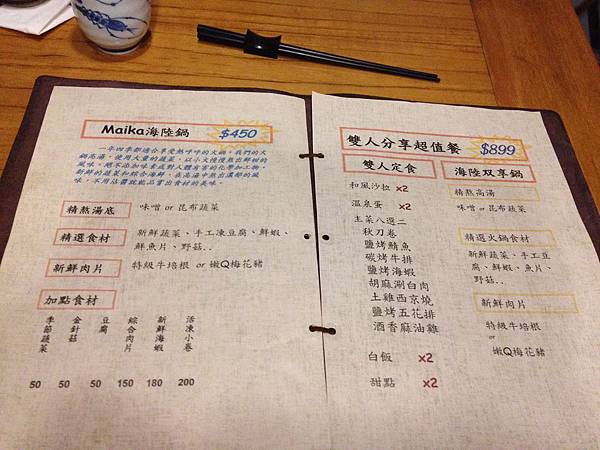 Maika海陸鍋 $450
一年四季都適合享受熱呼呼的火鍋，我們的火
鍋高湯，使用大量的蔬菜，以小火慢慢熬出鮮甜的
風味，絕不添加味素或對人體有害的化學加工物，
新鮮的蔬菜和綜合海鮮，在高湯中熬出濃郁的風
味，不用沾醬就能品嘗出食材的美味。
精熬湯底 味噌 or 昆布蔬菜
精選食材 新鮮蔬菜、手工凍豆腐、鮮蝦、
鮮魚片、野菇..
新鮮肉片 特級牛培根 or 嫩Q梅花豬
加點食材
季節蔬菜 50
金針菇 50
豆腐 50
綜合肉片 150
新鮮海蝦 180
活凍小卷 200
雙人分享超值餐 $899
雙人定食
和風沙拉 x2
溫泉蛋 x2
主菜八選二
秋刀卷
鹽烤鯖魚
碳烤牛排
鹽烤海蝦
胡麻涮白肉
土雞西京燒
鹽烤五花排
酒香麻油雞
白飯 x2
甜點 x2
海陸双享鍋
精熬高湯
味噌 or 昆布蔬菜
精選火鍋食材
新鮮蔬菜、手工豆
腐、鮮蝦、魚片、
野菇..
新鮮肉片
特級牛培根
or
嫩Q梅花豬